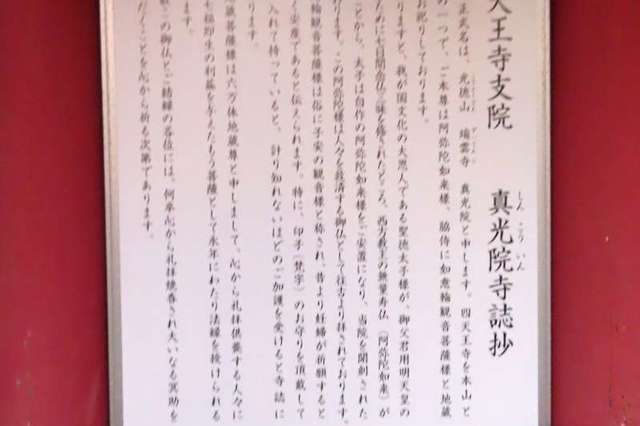 天王寺支院 真光院寺誌抄
しんこういん
正式名は、光徳山 瑞雲寺 真光院と申します。四天王寺を本山と
の一つで、ご本尊は阿弥陀如来様、脇侍に如意輪観音菩薩様と地蔵
お祀りしております。
りますと、我が国文化の大恩人である聖徳太子様が、御父君用明天皇の
ために七日間念仏三昧を修されたところ、西方教主の無量寿仏（阿弥陀如来）が
ことから、太子は自作の阿弥陀如来様をご安置になり、当院を開創された
ります。この阿弥陀様は人々を救済する御仏として往古より拝されております。
輪観音菩薩様は俗に子安の観音様と称され、昔より妊婦が祈願すると
く安産であると伝えられます。特に、印子（梵字）のお守りを頂戴して
入れて持っていると、計り知れないほどのご加護を受けると寺誌に
ります。
蔵菩薩様は六万体地蔵尊と申しまして、心から礼拝供養する人々に
七福即生の利益を与えたもう菩薩として永年にわたり法縁を授けられる
この御仏とご結縁の各位には、何卒心から礼拝焼香され大いなる冥助を
だくことを心から祈る次第であります。